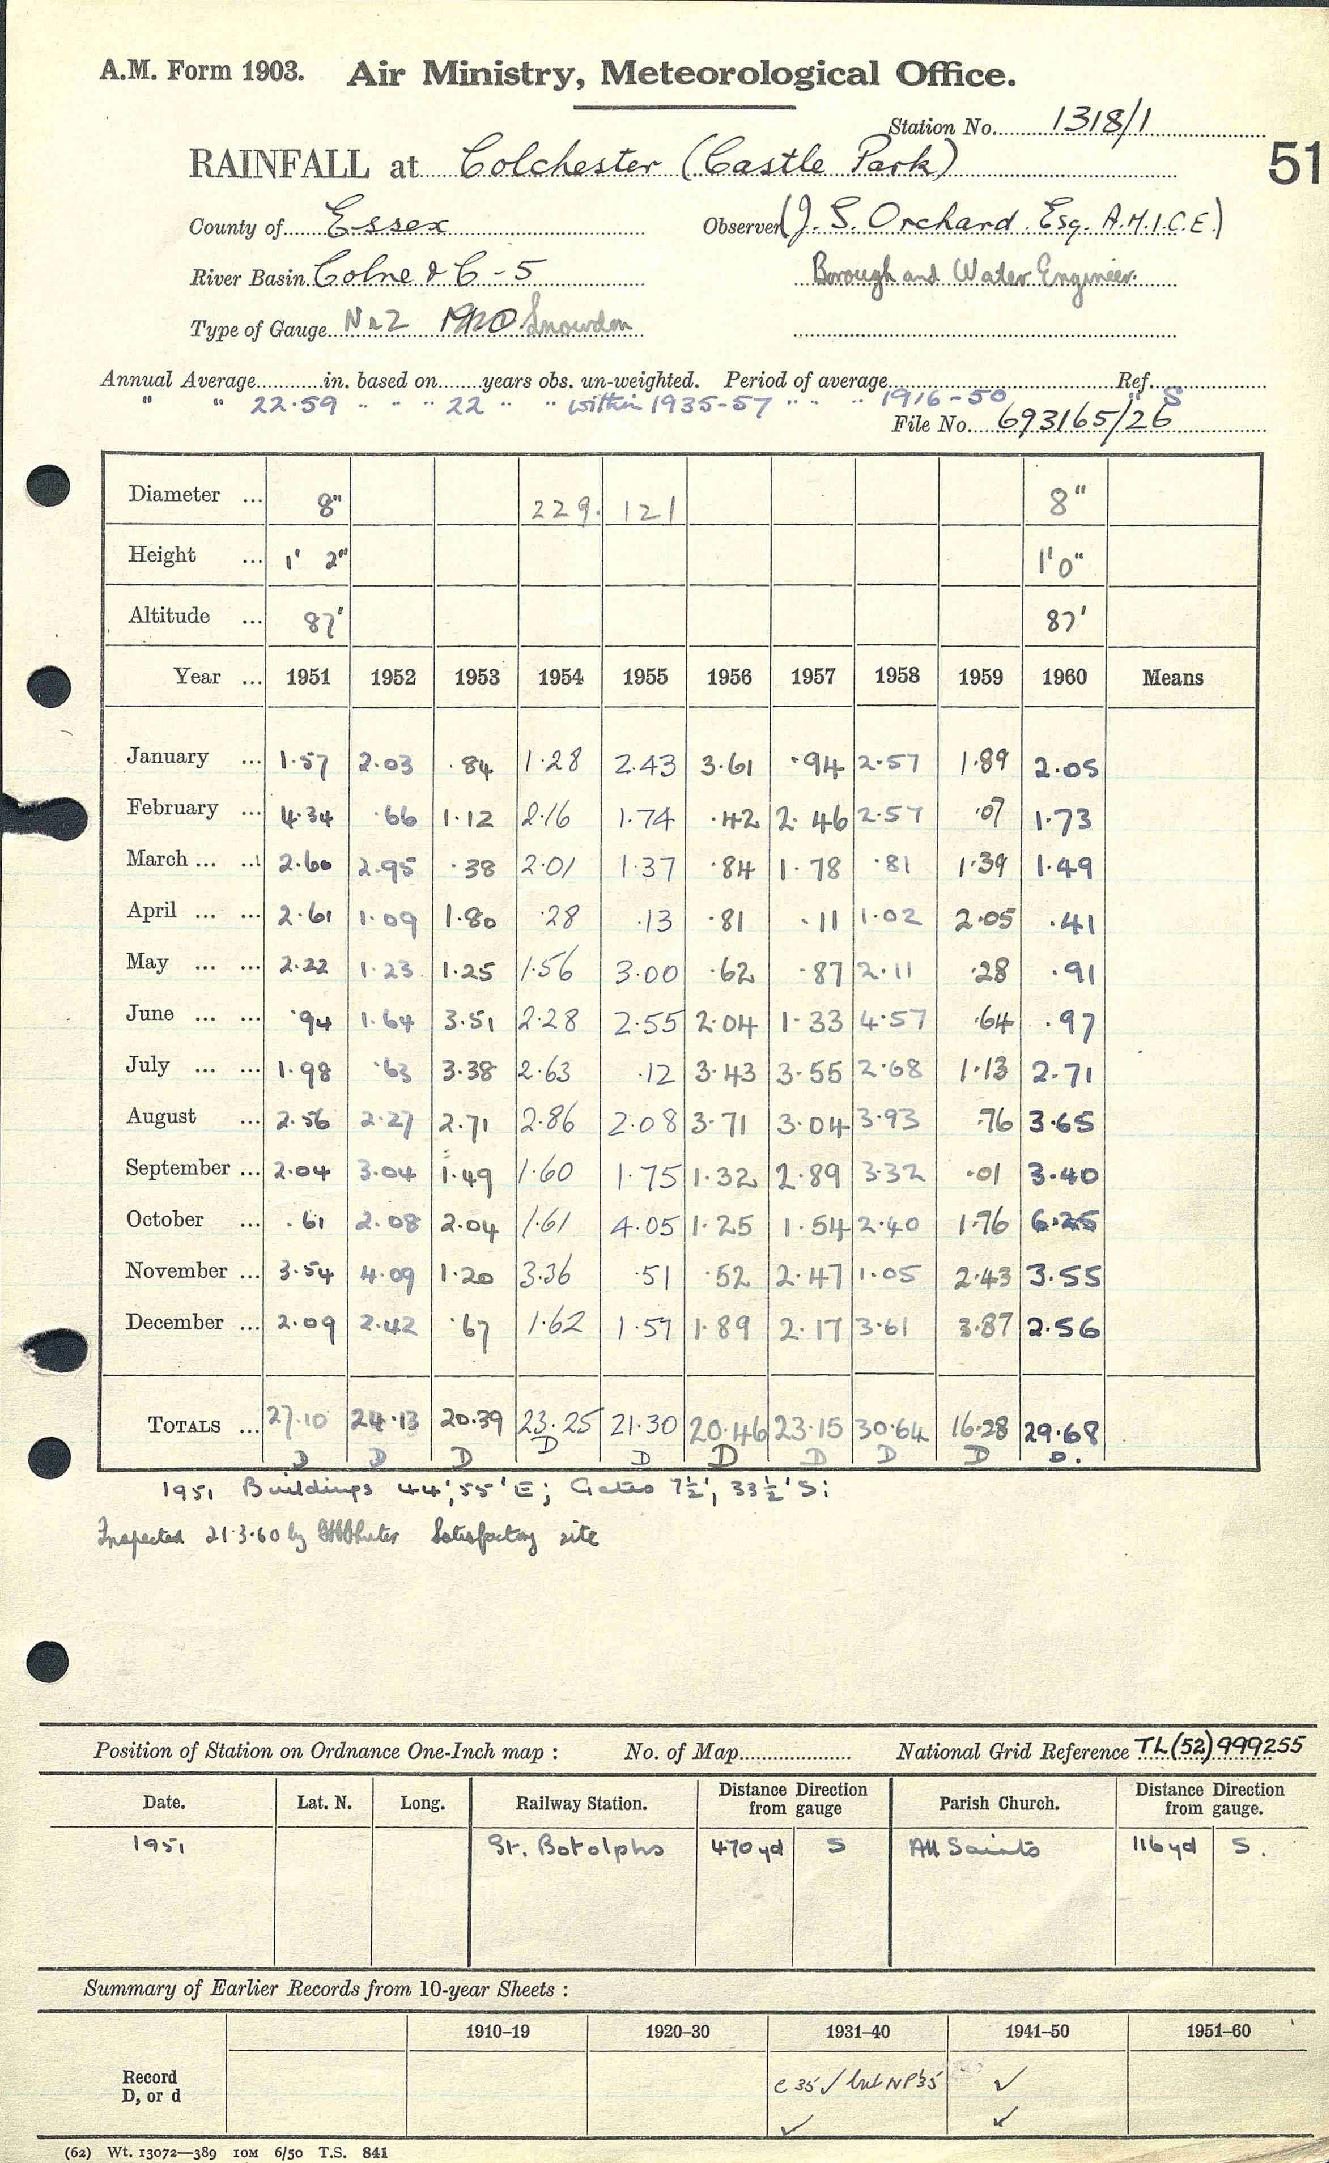 A.M. Form 1903. Air Ministry, Meteorological Office.
Station No. 1318/1
RAINFALL at Colchester (Castle Park) 51
County of Essex Observer (J. S. Orchard Esq. A.M.I.C.E.)
River Basin Colne & C-5 Borough and Water Engineer.
Type of Gauge No 2 Snowdon
Annual Average in. based on years obs. un-weighted. Period of average Ref.
" " 22.59 " " " 22 " " within 1935-57 " " " 1916-50 " S
File No. 693165/26
Diameter ... 8" 229. 121 8"
Height ... 1' 2" 1'0"
Altitude ... 87' 87'
Year ... 1951 1952 1953 1954 1955 1956 1957 1958 1959 1960 Means
January ... 1.57 2.03 .84 1.28 2.43 3.61 .94 2.57 1.89 2.05
February ... 4.34 .66 1.12 2.16 1.74 .42 2.46 2.57 .07 1.73
March ... ... 2.60 2.95 .38 2.01 1.37 .84 1.78 .81 1.39 1.49
April ... ... 2.61 1.09 1.80 .28 .13 .81 .11 1.02 2.05 .41
May ... ... 2.22 1.23 1.25 1.56 3.00 .62 .87 2.11 .28 .91
June ... ... .94 1.64 3.51 2.28 2.55 2.04 1.33 4.57 .64 .97
July ... ... 1.98 .63 3.38 2.63 .12 3.43 3.55 2.68 1.13 2.71
August ... 2.56 2.27 2.71 2.86 2.08 3.71 3.04 3.93 .76 3.65
September ... 2.04 3.04 1.49 1.60 1.75 1.32 2.89 3.32 .01 3.40
October ... .61 2.08 2.04 1.61 4.05 1.25 1.54 2.40 1.76 6.25
November ... 3.54 4.09 1.20 3.36 .51 .52 2.47 1.05 2.43 3.55
December ... 2.09 2.42 .67 1.62 1.57 1.89 2.17 3.61 3.87 2.56
TOTALS ... 27.10 24.13 20.39 23.25 21.30 20.46 23.15 30.64 16.28 29.68
D D D D D D D D D D.
1951 Buildings 44', 55' E; Gates 7½', 33½' S;
Inspected 21.3.60 by Satisfactory site
Position of Station on Ordnance One-Inch map : No. of Map National Grid Reference TL(52)999255
Date. Lat. N. Long. Railway Station. Distance Direction from gauge Parish Church. Distance Direction from gauge.
1951 St. Botolphs 470 yd S All Saints 116 yd S.
Summary of Earlier Records from 10-year Sheets :
1910–19 1920–30 1931–40 1941–50 1951–60
Record D, or d e 35 ✓ but NP35 ✓
✓ ✓
(62) Wt. 13072—389 10M 6/50 T.S. 841